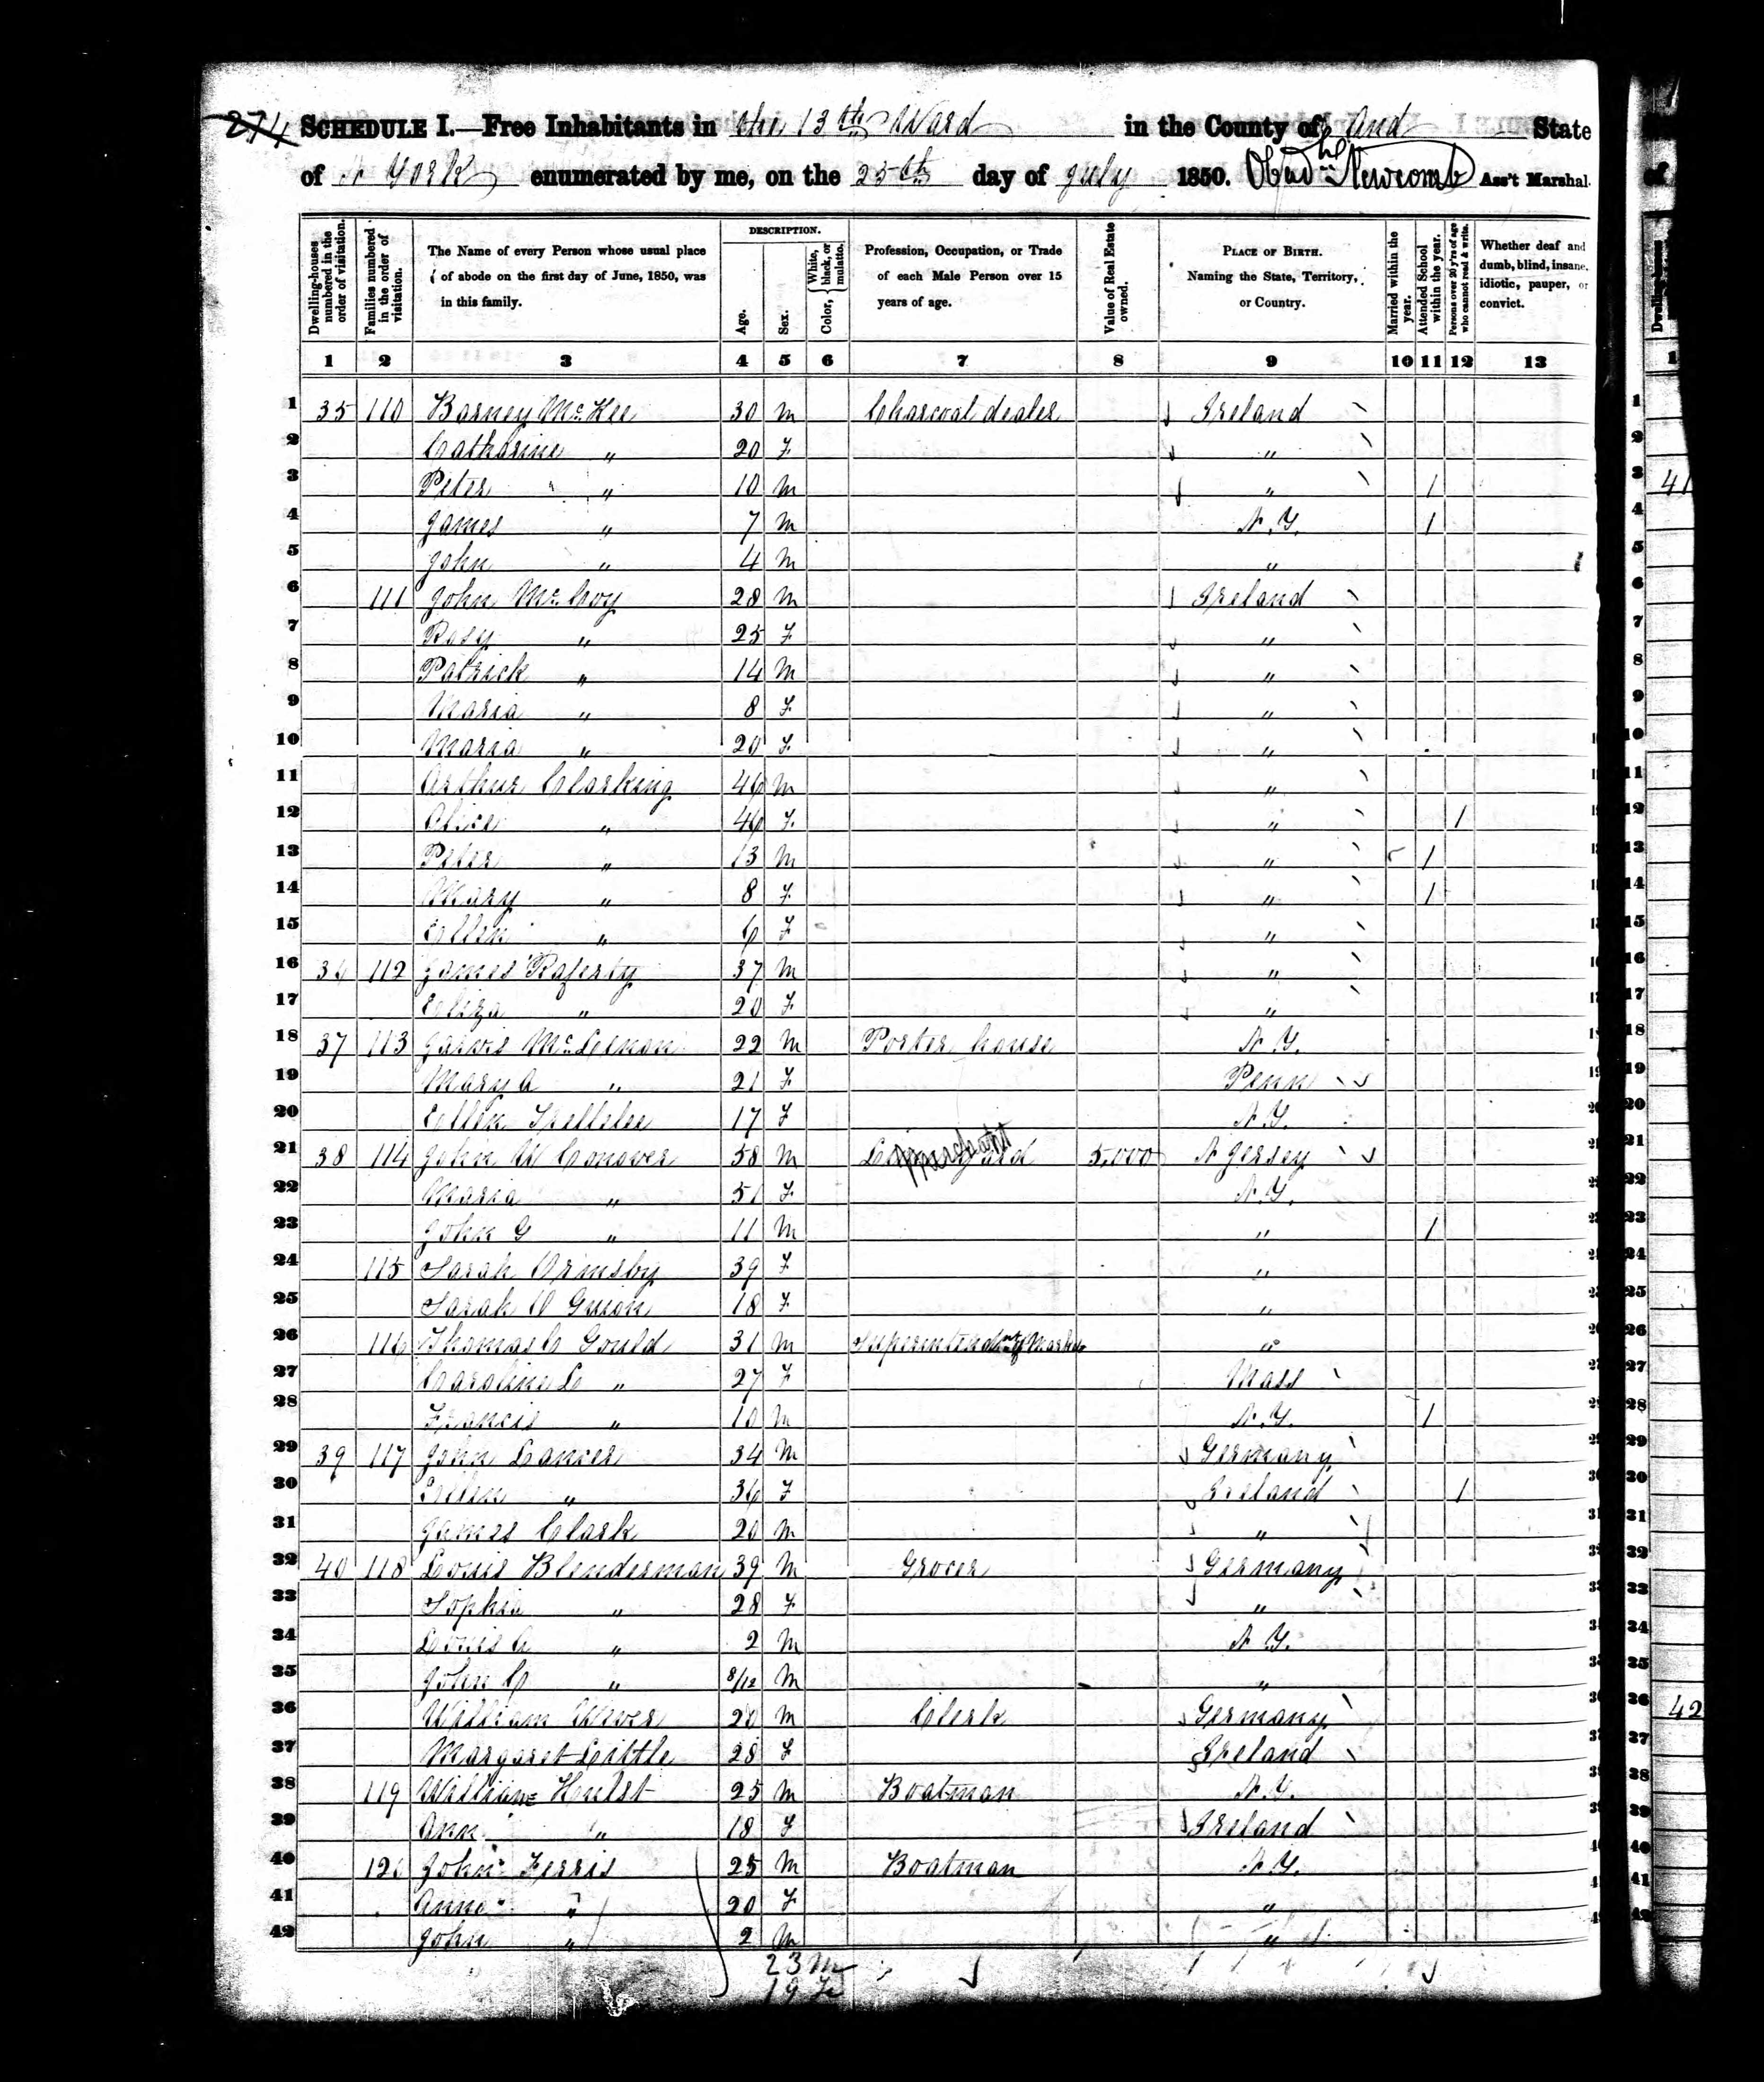 274 SCHEDULE I.—Free Inhabitants in the 13th Ward in the County of and State
of N York enumerated by me, on the 25th day of July 1850. Newcomb Ass't Marshal.
Dwelling-houses numbered in the order of visitation.
Families numbered in the order of visitation.
The Name of every Person whose usual place of abode on the first day of June, 1850, was in this family.
DESCRIPTION.
Age.
Sex.
Color, { White, black, or mulatto.
Profession, Occupation, or Trade of each Male Person over 15 years of age.
Value of Real Estate owned.
PLACE OF BIRTH. Naming the State, Territory, or Country.
Married within the year.
Attended School within the year.
Persons over 20 y'rs of age who cannot read & write.
Whether deaf and dumb, blind, insane, idiotic, pauper, or convict.
1 2 3 4 5 6 7 8 9 10 11 12 13
1 35 110 Barney McKee 30 m Charcoal dealer Ireland
2 Catharine " 20 F "
3 Peter " 10 m " 1
4 James " 7 m N.Y. 1
5 John " 4 m "
6 111 John McCoy 28 m Ireland
7 Rosy " 25 F "
8 Patrick " 14 m "
9 Maria " 8 F "
10 Maria " 20 F "
11 Arthur Clarking 46 m "
12 Alice " 46 F " 1
13 Peter " 13 m " 1
14 Mary " 8 F " 1
15 Ellen " 6 F "
16 36 112 James Raferty 37 m "
17 Eliza " 20 F "
18 37 113 McLeenon 22 m Porter house N.Y.
19 Mary A " 21 F Penn
20 Ellen 17 F N.Y.
21 38 114 John W Conover 58 m Merchant 5,000 N Jersey
22 Maria " 51 F N.Y.
23 John G " 11 m " 1
24 115 Sarah Ormsby 39 F "
25 Sarah Guion 18 F "
26 116 Thomas C Gould 31 m Superintendent of Markets "
27 Caroline L " 27 F Mass
28 Francis " 10 m N.Y. 1
29 39 117 John Lancer 34 m Germany
30 Ellen " 36 F Ireland 1
31 James Clark 20 m "
32 40 118 Louis Blenderman 39 m Grocer Germany
33 Sophia " 28 F "
34 Louis A " 2 m N.Y.
35 John C " 8/12 m "
36 William 20 m Clerk Germany
37 Margaret Little 28 F Ireland
38 119 William Hulst 25 m Boatman N.Y.
39 Ann " 18 F Ireland
40 120 John Ferris 25 m Boatman N.Y.
41 Anne " 20 F "
42 John " 2 m "
23 m
19 F
41
42